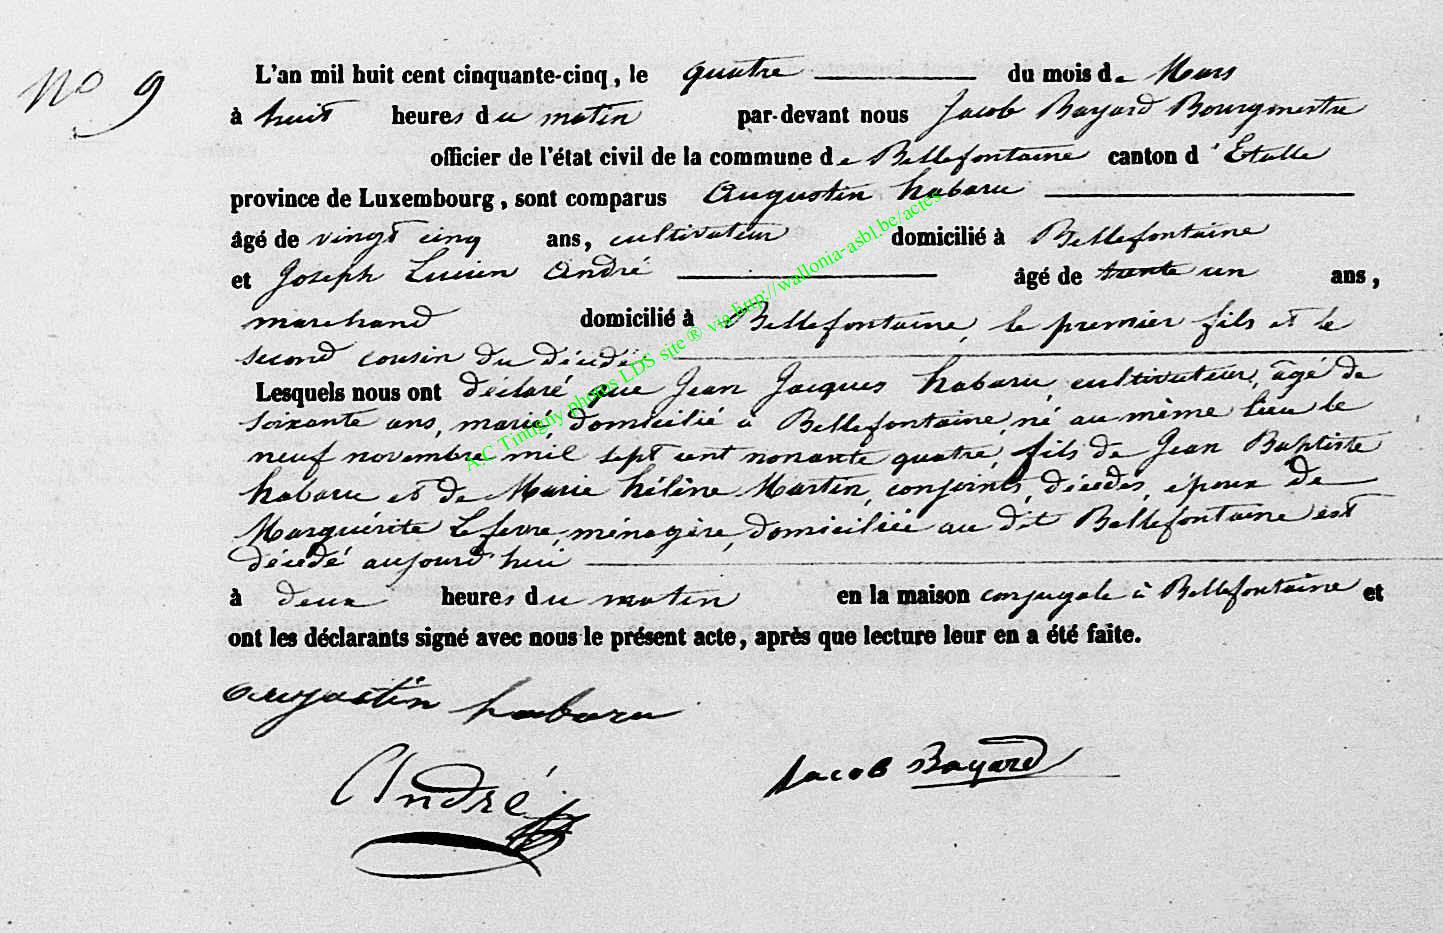 No 9
L'an mil huit cent cinquante-cinq, le quatre du mois de Mars
à huit heures du matin par-devant nous Jacob Bayard Bourgmestre
officier de l'état civil de la commune de Bellefontaine canton d'Etalle
province de Luxembourg, sont comparus Augustin habaru
âgé de vingt cinq ans, cultivateur domicilié à Bellefontaine
et Joseph Lucien André âgé de trente un ans,
marchand domicilié à Bellefontaine, le premier fils et le
second cousin du décédé
Lesquels nous ont déclaré que Jean Jacques habaru, cultivateur, âgé de
soixante ans, marié, domicilié à Bellefontaine, né au même lieu le
neuf novembre mil sept cent nonante quatre, fils de Jean Baptiste
habaru et de Marie hélène Martin, conjoints, décédés, époux de
Marguérite Lefevre, ménagère, domiciliée au dit Bellefontaine est
décédé aujourd'hui
à deux heures du matin en la maison conjugale à Bellefontaine et
ont les déclarants signé avec nous le présent acte, après que lecture leur en a été faite.
augustin habaru
André
Jacob Bayard
A.C Tintigny photos LDS site ® via http://wallonia-asbl.be/actes